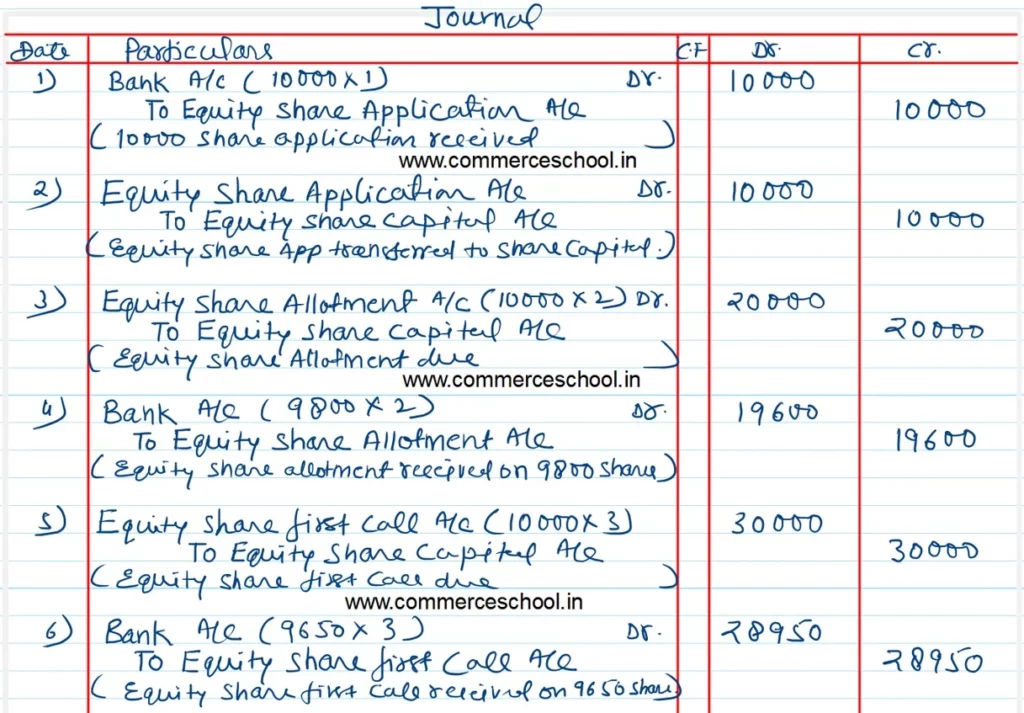 Journal
Date Particulars C.F Dr. Cr.
1) Bank A/c (10000×1) Dr. 10000
To Equity Share Application A/c 10000
(10000 share application received)
www.commerceschool.in
2) Equity Share Application A/c Dr. 10000
To Equity share capital A/c 10000
(Equity share App transferred to share Capital.)
3) Equity Share Allotment A/c (10000×2) Dr. 20000
To Equity share capital A/c 20000
(Equity share Allotment due)
www.commerceschool.in
4) Bank A/c (9800×2) Dr. 19600
To Equity share Allotment A/c 19600
(Equity share allotment received on 9800 share)
5) Equity Share first call A/c (10000×3) 30000
To Equity share capital A/c 30000
(Equity share first call due)
www.commerceschool.in
6) Bank A/c (9650×3) Dr. 28950
To Equity share first call A/c 28950
(Equity share first call received on 9650 share)